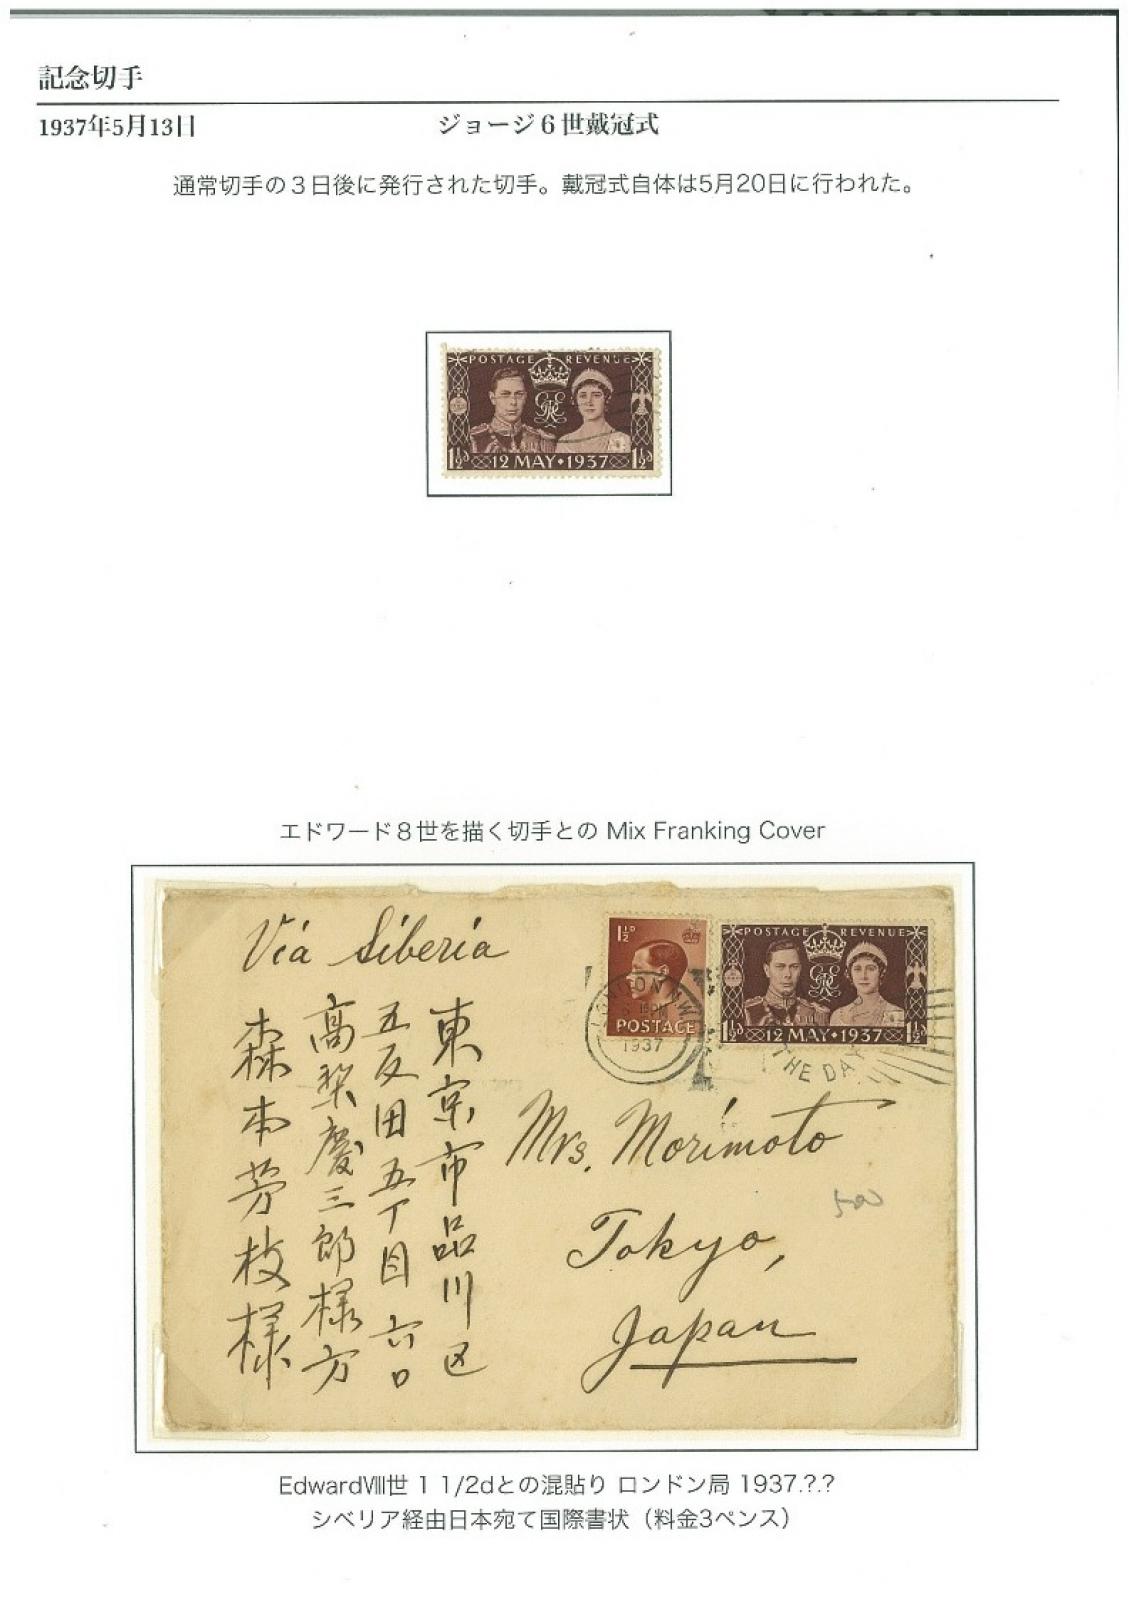 記念切手
1937年5月13日
ジョージ6世戴冠式
通常切手の3日後に発行された切手。戴冠式自体は5月20日に行われた。
POSTAGE REVENUE
1½d 12 MAY • 1937 1½d
エドワード8世を描く切手との Mix Franking Cover
Via Siberia
1½D
POSTAGE
POSTAGE REVENUE
1½d 12 MAY • 1937 1½d
LONDON N.W.
1937
THE DAY
東京市品川区
五反田五丁目六〇
高梨慶三郎様方
森本芳枝様
Mrs. Morimoto
Tokyo,
Japan
500
EdwardⅧ世 1 1/2dとの混貼り ロンドン局 1937.?.?
シベリア経由日本宛て国際書状（料金3ペンス）